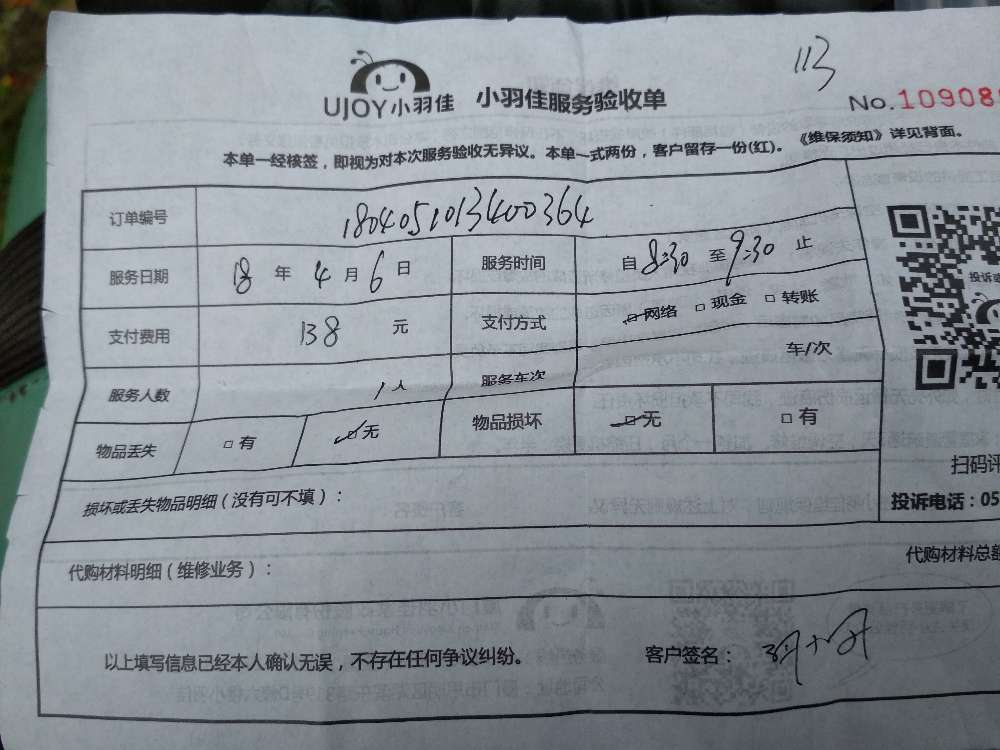 113
UJOY小羽佳 小羽佳服务验收单 No.10908
本单一经核签，即视为对本次服务验收无异议。本单一式两份，客户留存一份(红)。《维保须知》详见背面。
订单编号 1804051013400364
服务日期 18 年 4 月 6 日 服务时间 自 8:30 至 9:30 止
支付费用 138 元 支付方式 ☑网络 □现金 □转账
服务人数 1人 服务车次 车/次
物品丢失 □有 ☑无 物品损坏 ☑无 □有
投诉
扫码评
损坏或丢失物品明细（没有可不填）： 投诉电话：05
代购材料明细（维修业务）： 代购材料总额
以上填写信息已经本人确认无误，不存在任何争议纠纷。 客户签名：